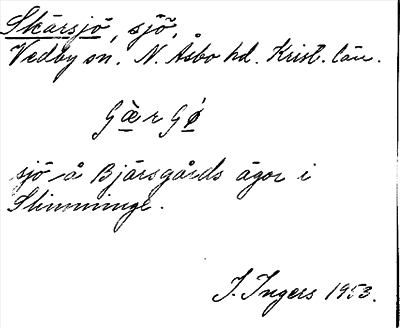 Skärsjö, sjö,
Vedby sn. N. Åsbo hd. Krist. län.
sjö å Bjärsgårds ägor i
Slimminge.
I. Ingers 1953.